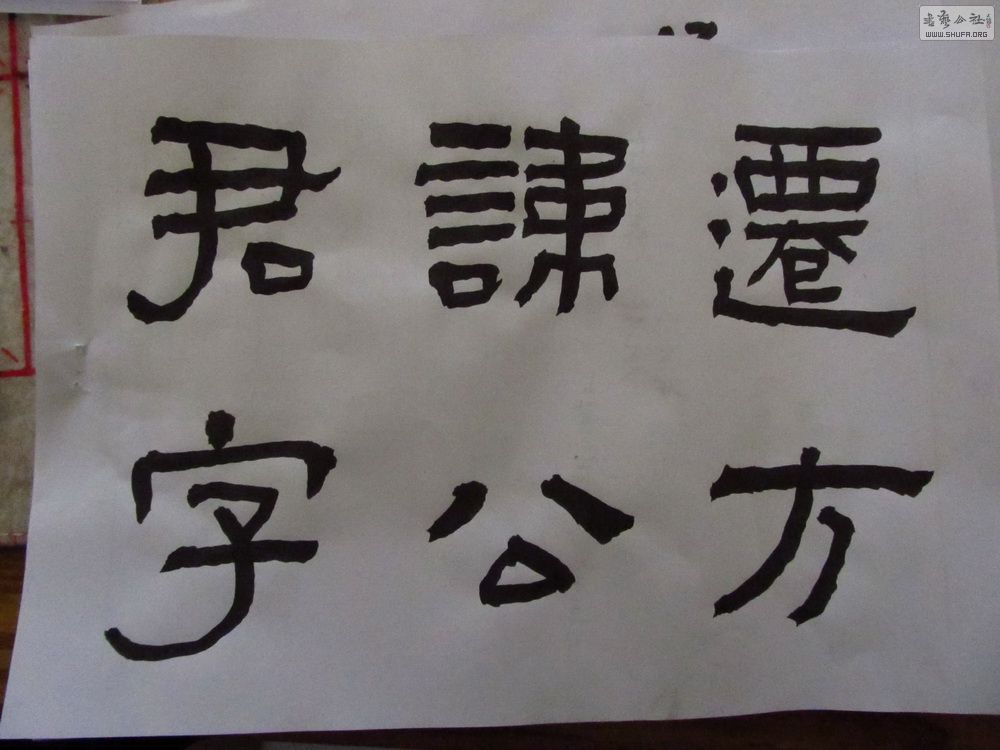 君諱遷
字公方
書藝公社
WWW.SHUFA.ORG